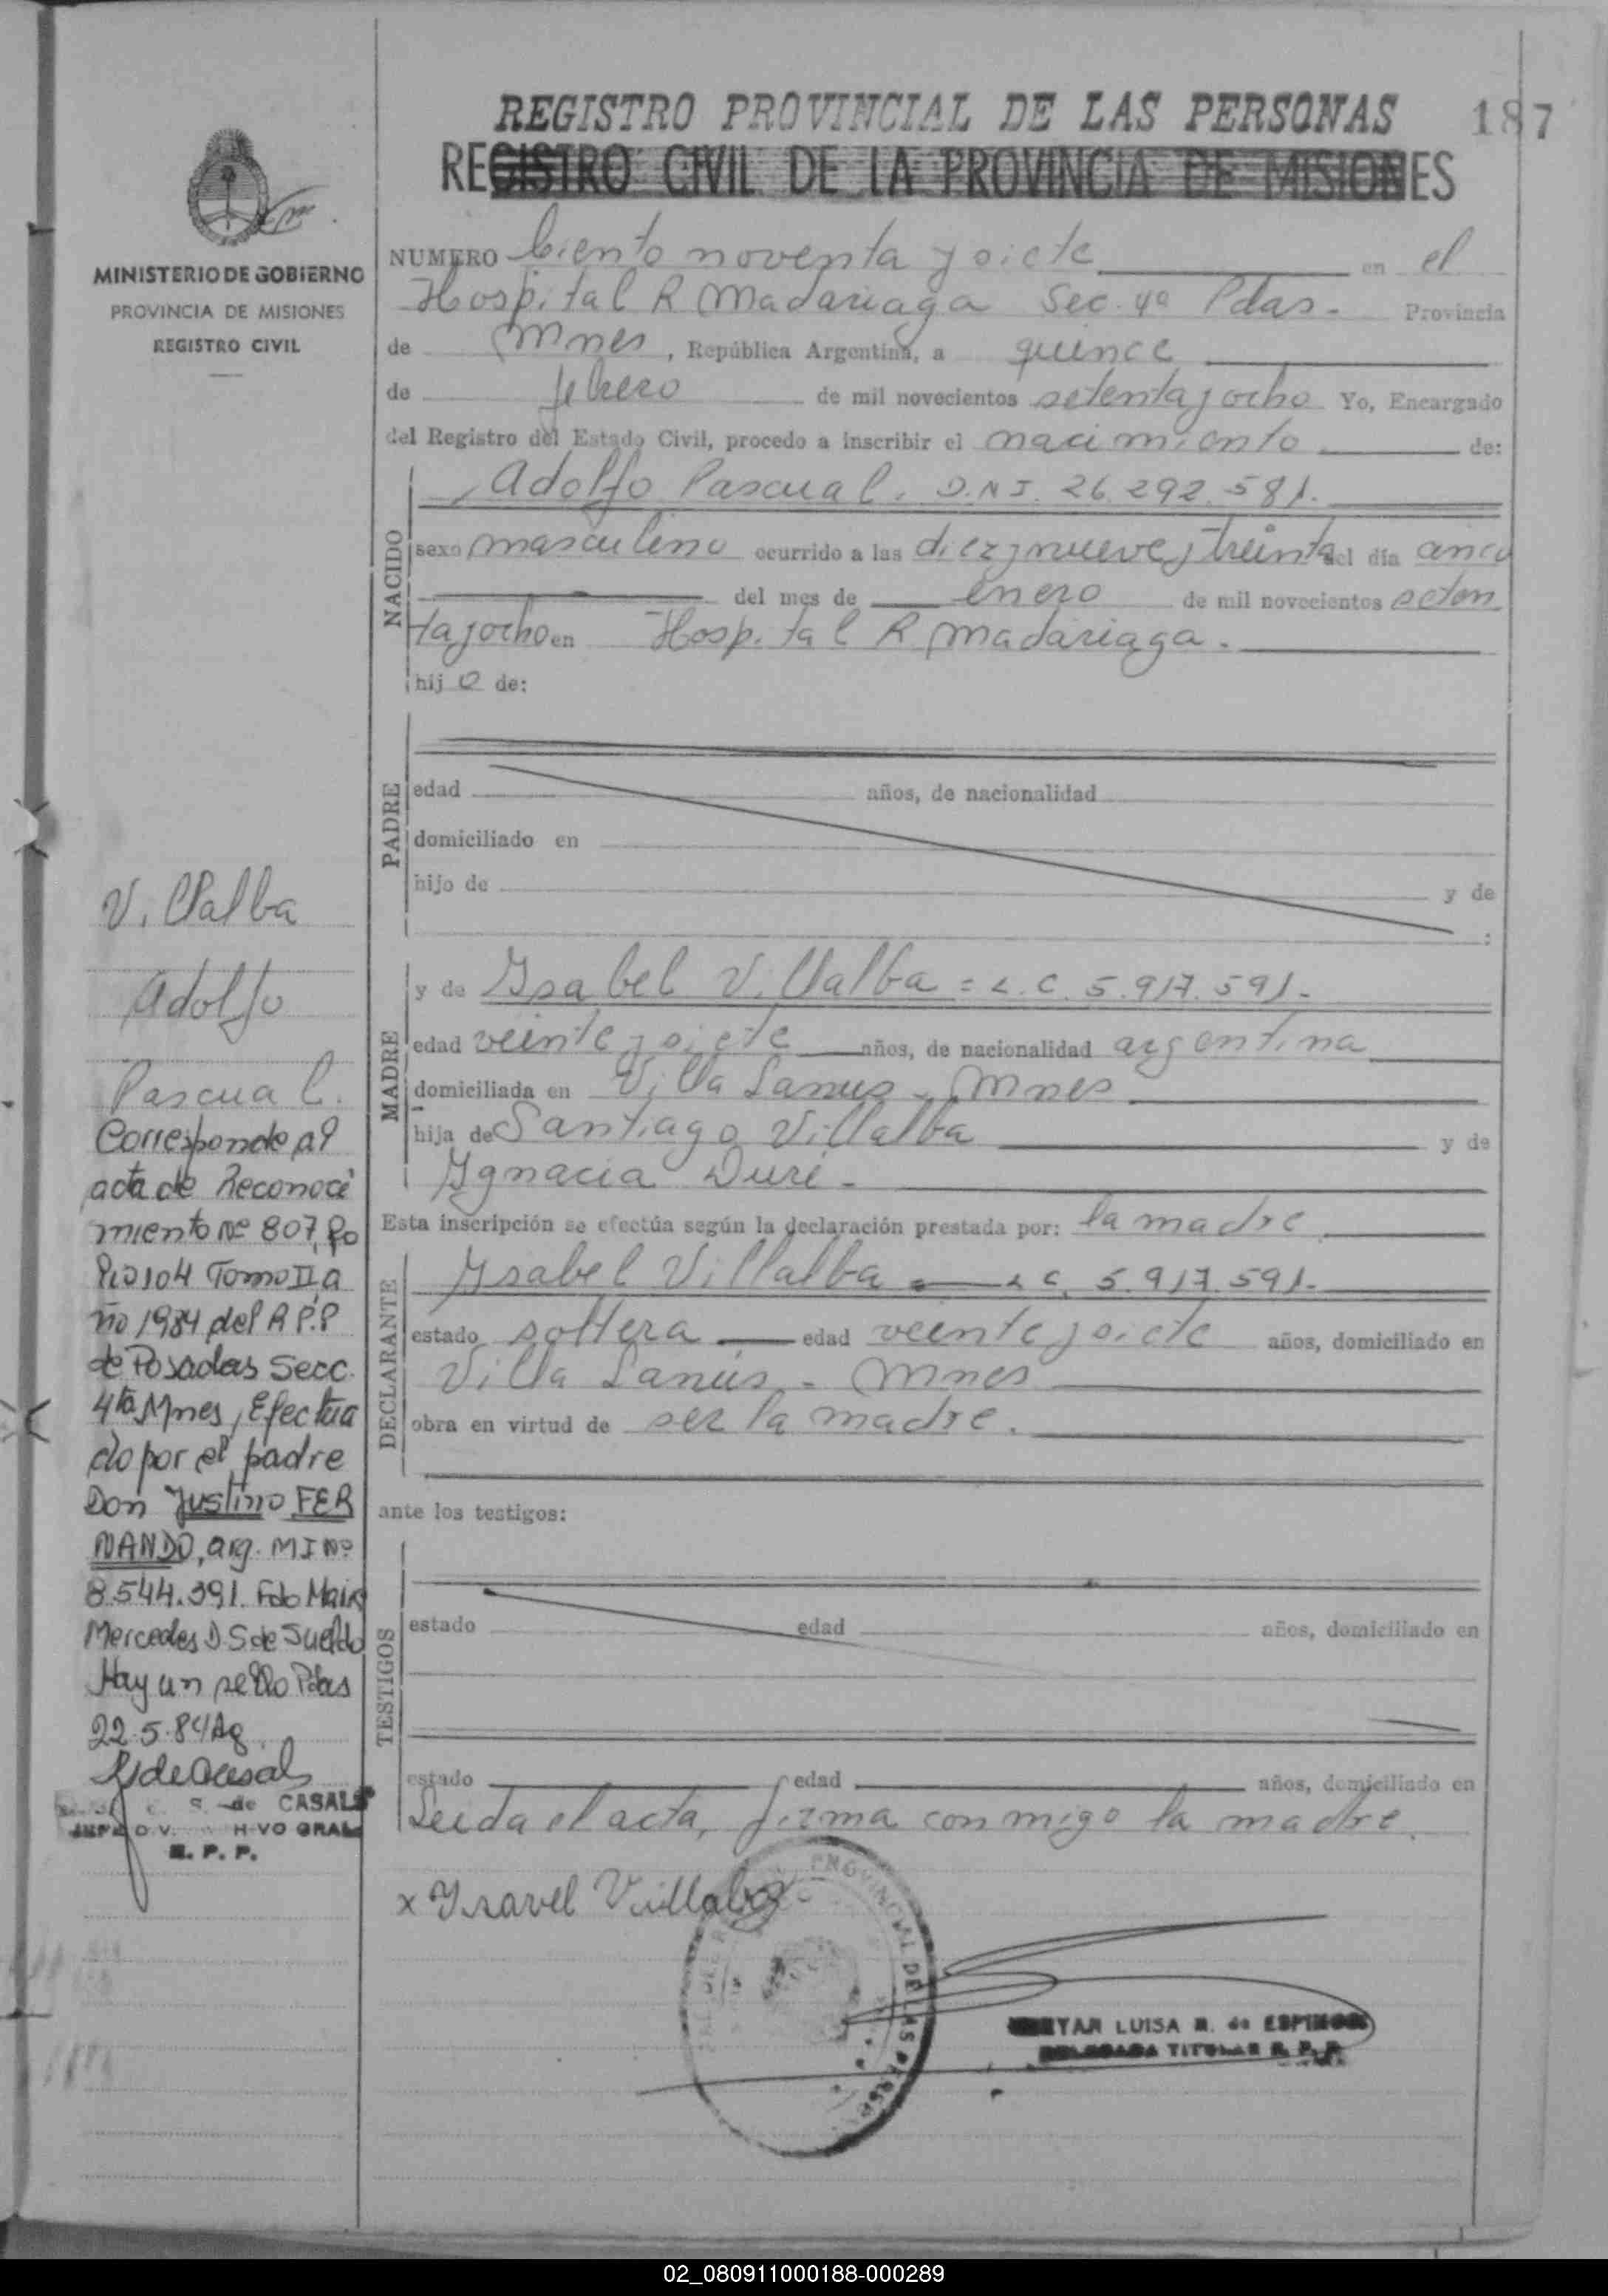 REGISTRO PROVINCIAL DE LAS PERSONAS
187
REGISTRO CIVIL DE LA PROVINCIA DE MISIONES
MINISTERIO DE GOBIERNO
PROVINCIA DE MISIONES
REGISTRO CIVIL
NUMERO Ciento noventa y siete en el
Hospital R Madariaga Sec. 4ª Pdas. Provincia
de Mnes, República Argentina, a quince
de febrero de mil novecientos setenta y ocho Yo, Encargado
del Registro del Estado Civil, procedo a inscribir el nacimiento de:
NACIDO
Adolfo Pascual. D.N.I. 26.292.581.
sexo masculino ocurrido a las diez y nueve y treinta del día cinco
del mes de enero de mil novecientos seten
ta y ocho en Hospital R Madariaga.
hijo de:
PADRE
edad años, de nacionalidad
domiciliado en
hijo de y de
:
MADRE
y de Ysabel Villalba = L.C. 5.917.591.-
edad veinte y siete años, de nacionalidad argentina
domiciliada en Villa Lanus - Mnes
hija de Santiago Villalba y de
Ygnacia Duré.-
Esta inscripción se efectúa según la declaración prestada por: la madre
DECLARANTE
Ysabel Villalba L.C. 5.917.591.-
estado soltera edad veinte y siete años, domiciliado en
Villa Lanús - Mnes
obra en virtud de ser la madre.
ante los testigos:
TESTIGOS
estado edad años, domiciliado en
estado edad años, domiciliado en
Leida el acta, firma conmigo la madre.
x Ysavel Villalba
PROVINCIAL DE LAS PERSO
LUISA M. de ESPINOSA
DELEGADA TITULAR R. P. P.
Villalba
Adolfo
Pascual.
Corresponde al
acta de Reconoci
miento Nº 807, Fo
lio 104 Tomo II, a
ño 1984 del R.P.P
de Posadas Secc.
4ta Mnes, Efectua
do por el padre
Don Justino FER
NANDO, arg. M I Nº
8.544.391. Fdo Maira
Mercedes D.S de Sueldo
Hay un sello Pdas
22.5.84 Ag.
S. de CASALS
R. P. P.
02_080911000188-000289